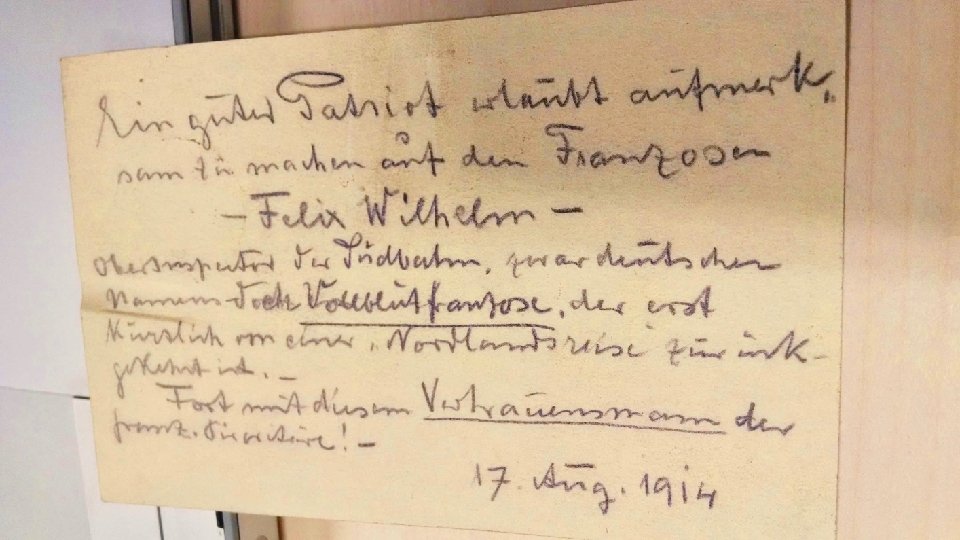 Ein guter Patriot erlaubt aufmerk„
sam zu machen auf den Franzosen
– Felix Wilhelm –
Oberinspektor der Südbahn, zwar deutschen
Namens doch Vollblutfranzose, der erst
kürzlich von einer Nordlandsreise zurück-
gekehrt ist. –
Fort mit diesem Vertrauensmann der
franz. ! –
17. Aug. 1914